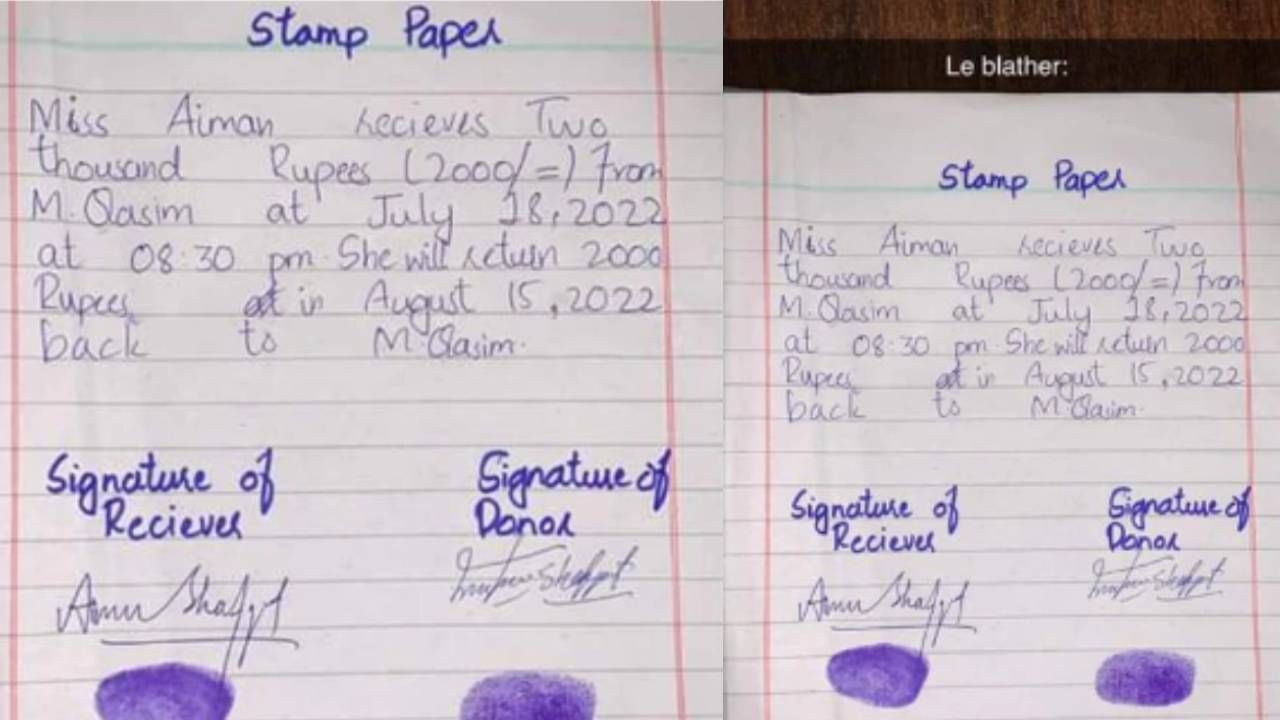 Stamp Paper
Miss Aiman recieves Two
thousand Rupees (2000/=) From
M. Qasim at July 18, 2022
at 08:30 pm. She will return 2000
Rupees in August 15, 2022
back to M. Qasim.
Signature of Reciever
Signature of Donor
Le blather:
Stamp Paper
Miss Aiman recieves Two
thousand Rupees (2000/=) From
M. Qasim at July 18, 2022
at 08:30 pm. She will return 2000
Rupees in August 15, 2022
back to M. Qasim.
Signature of Reciever
Signature of Donor